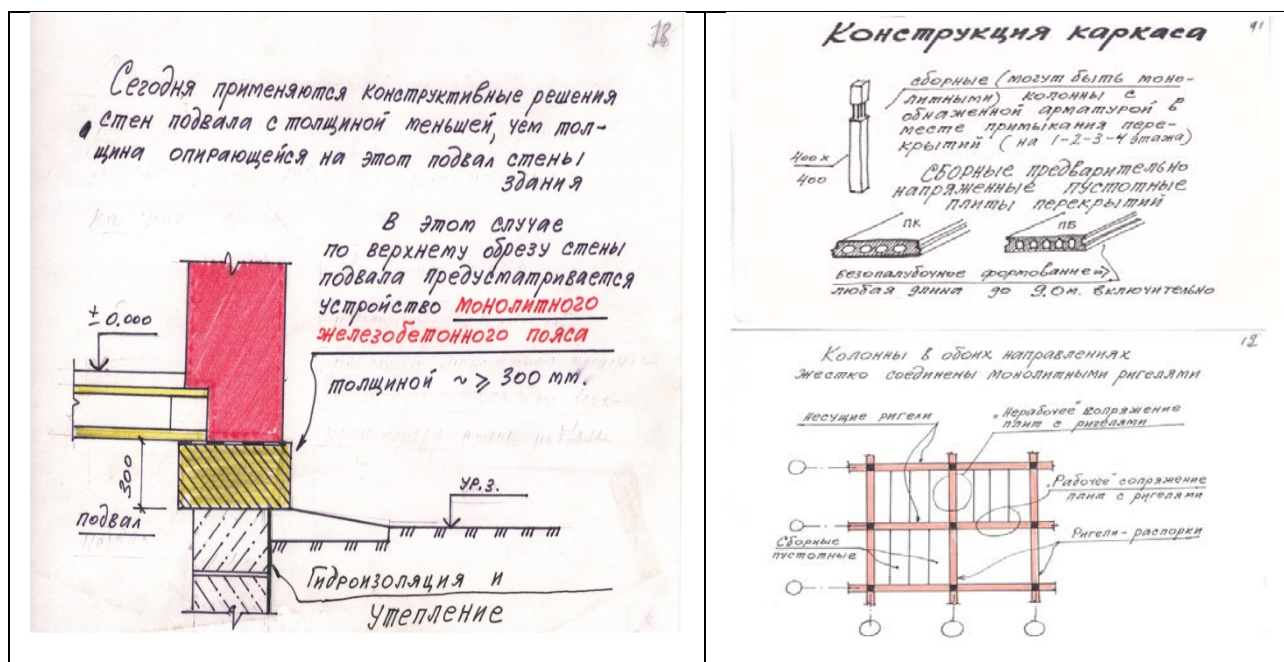 18
Сегодня применяются конструктивные решения
стен подвала с толщиной меньшей, чем тол-
щина опирающейся на этот подвал стены
здания
В этом случае
по верхнему обрезу стены
подвала предусматривается
устройство монолитного
железобетонного пояса
толщиной ~ ≥ 300 мм.
± 0.000
300
подвал
ур.з.
Гидроизоляция и
утепление
Конструкция каркаса
сборные (могут быть моно-
литными) колонны с
обнаженной арматурой в
месте примыкания пере-
крытий (на 1-2-3-4 этажа)
400х
400
Сборные предварительно
напряженные пустотные
плиты перекрытий
ПК
ПБ
Безопалубочное формование
любая длина до 9.0 м. включительно
12
Колонны в обоих направлениях
жестко соединены монолитными ригелями
Несущие ригели
„Нерабочее" сопряжение
плит с ригелями
„Рабочее" сопряжение
плит с ригелями
Сборные
пустотные
Ригели-распорки